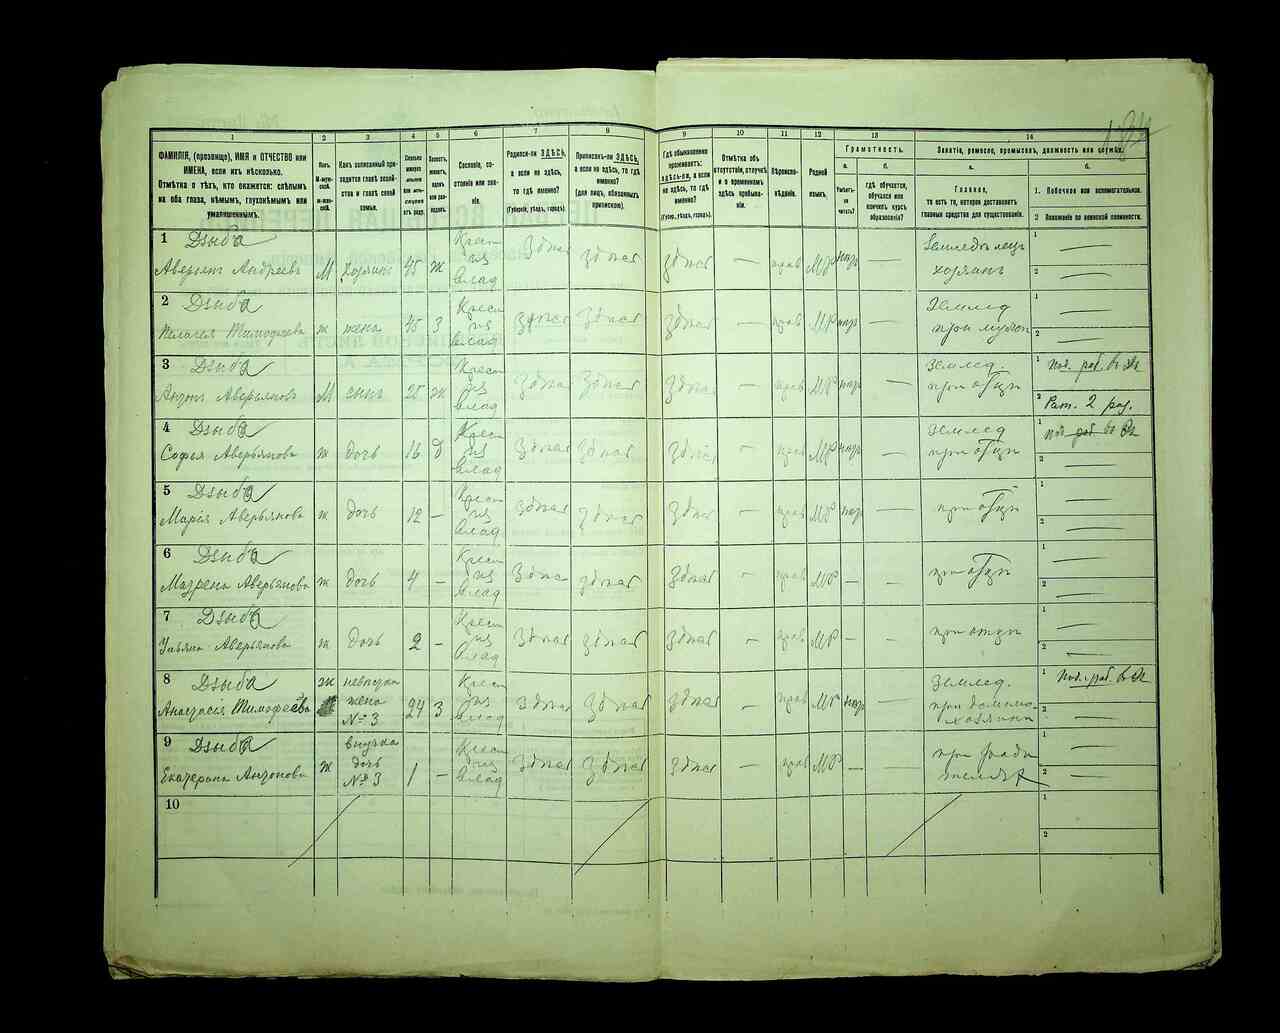 1 2 3 4 5 6 7 8 9 10 11 12 13 14
ФАМИЛІЯ, (прозвище), ИМЯ и ОТЧЕСТВО или ИМЕНА, если ихъ нѣсколько.
Отмѣтка о тѣхъ, кто окажется: слѣпымъ на оба глаза, нѣмымъ, глухонѣмымъ или умалишеннымъ.
Полъ.
М-мужской.
Ж-женскій.
Какъ записанный приходится главѣ хозяйства и главѣ своей семьи.
Сословіе, состояніе или званіе.
Родился-ли ЗДѢСЬ, а если не здѣсь, то гдѣ именно?
(Губернія, уѣздъ, городъ).
Приписанъ-ли ЗДѢСЬ, а если не здѣсь, то гдѣ именно?
(Для лицъ, обязанныхъ припискою).
Гдѣ обыкновенно проживаетъ: здѣсь-ли, а если не здѣсь, то гдѣ именно?
(Губер., уѣздъ, городъ).
Отмѣтка объ отсутствіи, отлучкѣ и о временномъ здѣсь пребываніи.
Вѣроисповѣданіе.
Родной языкъ.
Грамотность.
а.
Умѣетъ-ли читать?
б.
гдѣ обучается, обучался или кончилъ курсъ образованія?
Занятіе, ремесло, промыселъ, должность или служба.
а.
Главное,
то есть то, которое доставляетъ главныя средства для существованія.
б.
1. Побочное или вспомогательное.
2. Положеніе по воинской повинности.
1 Дзыба
Аверьян Андреевъ М хозяинъ 45 ж Крест из влад здѣсь здѣсь здѣсь — прав МР нгр — Земледѣлецъ хозяинъ 1 — 2 —
2 Дзыба
Пелагея Тимофеева ж жена 45 з Крест из влад здѣсь здѣсь здѣсь — прав МР нгр — Землед при мужѣ 1 — 2 —
3 Дзыба
Антон Аверьяновъ М сынъ 25 ж Крест из влад здѣсь здѣсь здѣсь — прав МР нгр — Землед. при отцѣ 1 Под. раб. 2 Рат. 2 раз.
4 Дзыба
Софья Аверьянова ж дочь 16 д Крест из влад здѣсь здѣсь здѣсь — прав МР нгр — Землед при отцѣ 1 под раб 2 —
5 Дзыба
Марія Аверьянова ж дочь 12 — Крест из влад здѣсь здѣсь здѣсь — прав МР нгр — при отцѣ 1 — 2 —
6 Дзыба
Мазрена Аверьянова ж дочь 4 — Крест из влад здѣсь здѣсь здѣсь — прав МР — — при отцѣ 1 — 2 —
7 Дзыба
Ульяна Аверьянова ж дочь 2 — Крест из влад здѣсь здѣсь здѣсь — прав МР — — при отцѣ 1 — 2 —
8 Дзыба
Анастасія Тимофеева ж невѣстка жена №3 24 з Крест из влад здѣсь здѣсь здѣсь — прав МР нгр — Землед. при домохозяинѣ 1 Под. раб. 2 —
9 Дзыба
Екатерина Антонова ж внучка дочь №3 1 — Крест из влад здѣсь здѣсь здѣсь — прав МР — — при 1 — 2 —
10 1 2